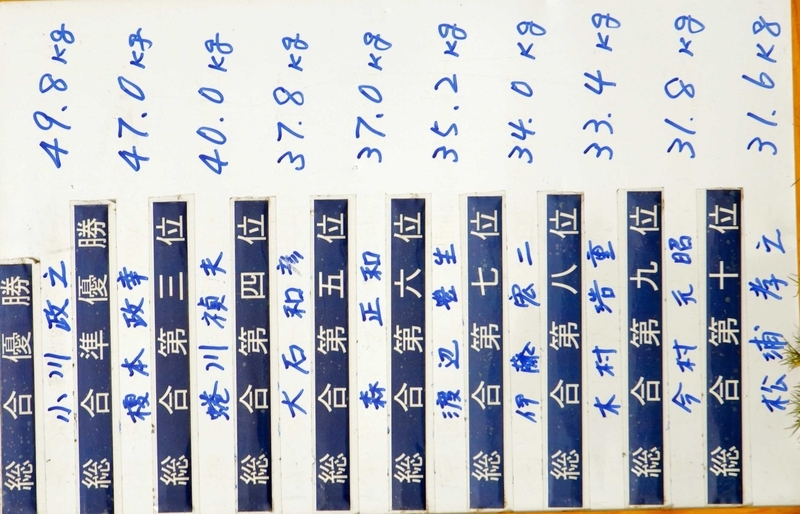 総合優勝
小川政之 49.8kg
総合準優勝
榎本政幸 47.0kg
総合第三位
蜷川禎夫 40.0kg
総合第四位
大石和彦 37.8kg
総合第五位
森 正和 37.0kg
総合第六位
渡辺 生 35.2kg
総合第七位
伊藤宏二 34.0kg
総合第八位
木村浩重 33.4kg
総合第九位
今村元昭 31.8kg
総合第十位
松浦孝之 31.6kg